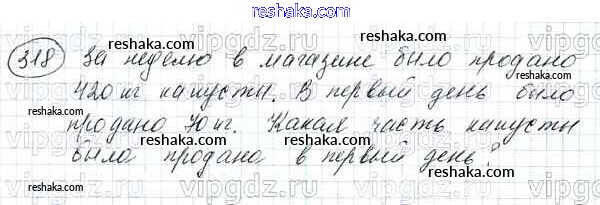 reshaka.com
318 За неделю в магазине было продано
reshaka.com reshaka.com
420 кг капусты. В первый день было
reshaka.com reshaka.com
продано 70 кг. Какая часть капусты
reshaka.com reshaka.com
была продана в первый день?
reshaka.com reshaka.com
vipgdz.ru